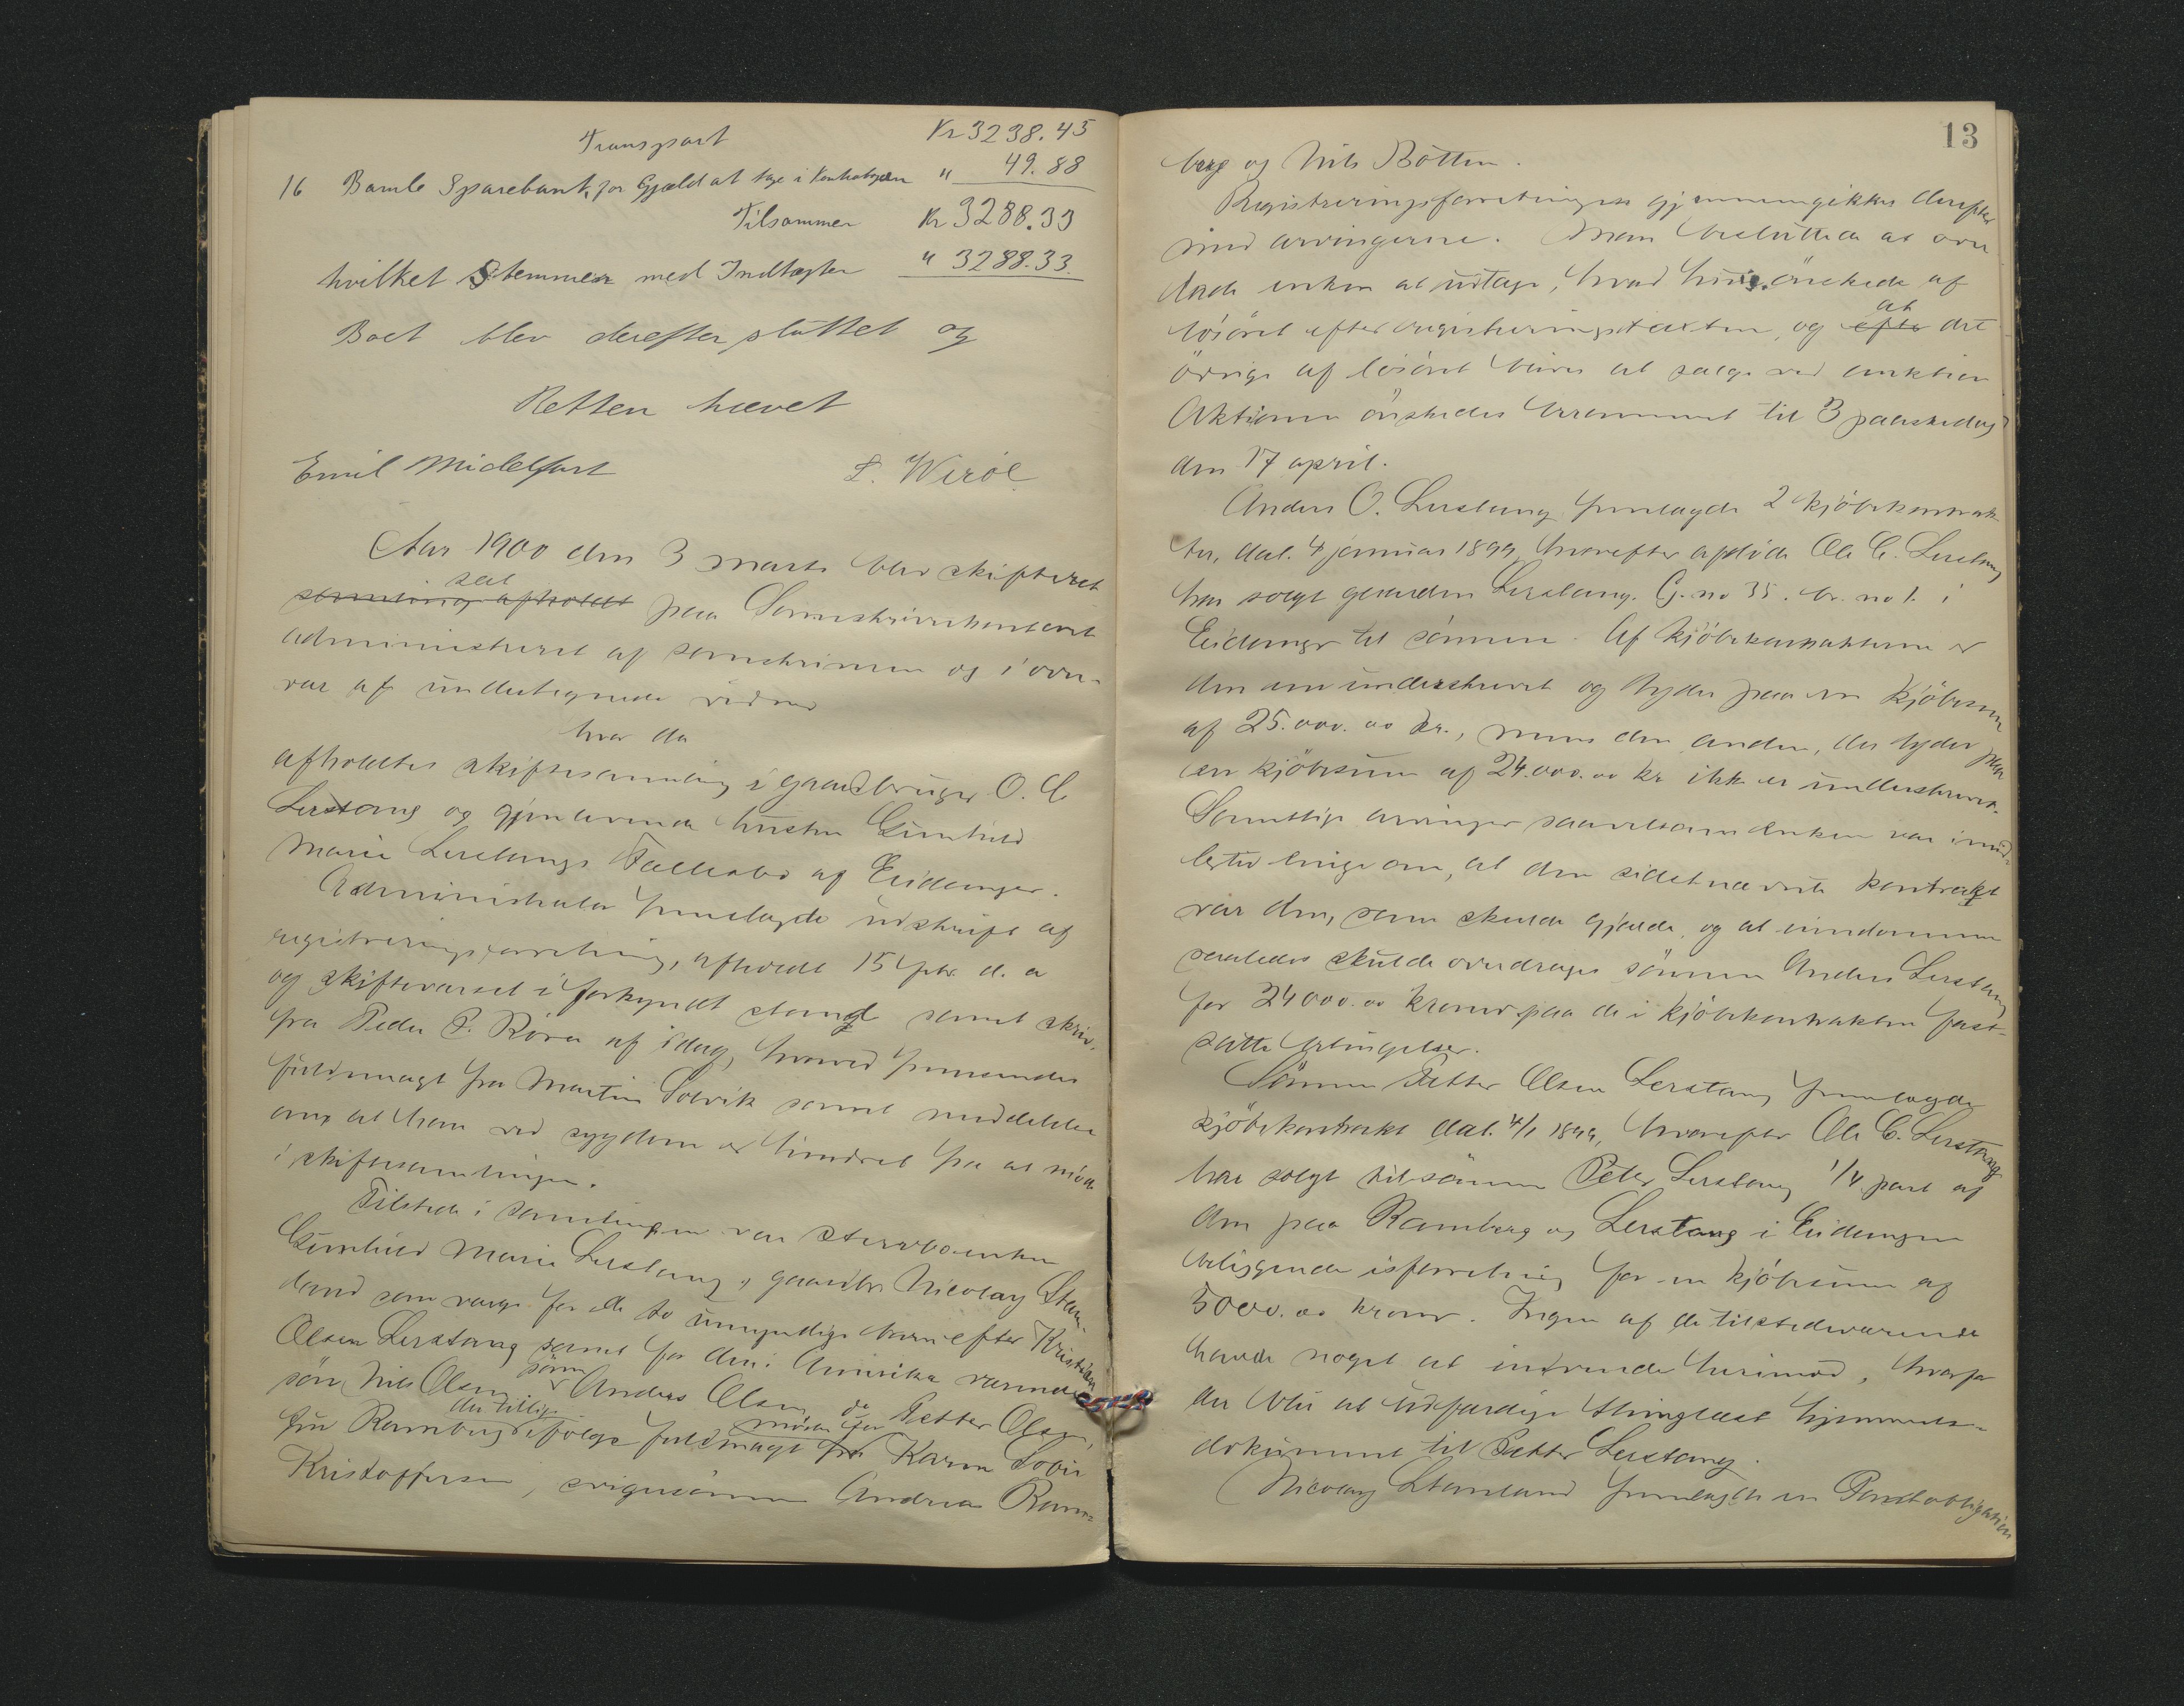 Transport Kr 3238.45
16 Bamle Sparebank, for Gjæld at " 49.88
Tilsammen Kr 3288.33
hvilket stemmer med Indtægter " 3288.33.
Boet blev derefter sluttet og
Retten hævet
Emil Midelfart L. Wirøe
Aar 1900 den 3 marts blev skifteret
sat
samling afholdt paa Sorenskriverkontoret
administreret af sorenskriveren og i over-
vær af undertegnede vidner
hvor da
afholdtes skiftesamling i gaardbruger O. C.
Lerstang og gjenlevende hustru Gunhild
Marie Lerstangs Fællesbo af Eidanger.
Administrator fremlagde udskrift af
registreringsforretning, afholdt 15 febr. d. a
og skiftevarsel i forkyndt stand samt skriv.
fra Peder P. Röra af idag, hvorved fremsendes
fuldmagt fra Martin Solvik samt meddeles
om, at han ved sygdom er hindret fra at möde
i skiftesamlingen.
Tilstede i samlingen var sterboenken
Gunhild Marie Lerstang, gaardbr Nicolay Stam-
land som værge for de to umyndige børn efter Kristian
Olsen Lerstang samt for den i Amerika værende
sön Nils Olsen, sönn Anders Olsen, Petter Olsen,
der tillige möder for
fru Ramberg ifølge fuldmagt fra Karen Sovie
Kristoffersen, svigersönnen Andreas Ram-
13
berg og Nils Bötten.
Registreringsforretningen gjennemgikkes derefter
med arvingerne. Man besluttede at over
lade enken at udtage, hvad hun önskede af
at
lösöret efter registreringstaxten, og efter det
övrige af lösöret bliver at sælge ved auktion
Aktionen önskedes berammet til 3 paaskedag
den 17 april.
Anders O. Lerstang fremlagde 2 kjöbekontrak-
ter, dat. 4 januar 1899, hvorefter afdöde Ole C. Lerstang
har solgt gaarden Lerstang. G. no 35. br. no 1. i
Eidanger til sönnen. Af kjöbekontrakterne er
den ene underskrevet og lyder paa en kjöbesum
af 25.000.00 kr., mens den anden, der lyder paa
en kjöbesum af 24.000.00 kr ikke er underskrevet.
Samtlige arvinger saavelsom enken var imid-
lertid enige om, at den sidstnævnte kontrakt
var den, som skulde gjælde, og at eiendommen
saaledes skulde overdrages sönnen Anders Lerstang
for 24000.00 kroner paa de i kjöbekontrakten fast-
satte betingelser.
Sönnen Petter Olsen Lerstang fremlagde
kjöbekontrakt dat. 4/1 1899, hvorefter Ole C. Lerstang
har solgt til sönnen Peter Lerstang 1/4 part af
den paa Ramberg og Lerstang i Eidanger
beliggende isforretning for en kjöbesum af
5000.00 kroner. Ingen af de tilstedeværende
havde noget at indvende herimod, hvorfor
der blir at udfærdige thinglæst hjemmels-
dokument til Petter Lerstang.
Nicolay Stamland fremlagde en Pantobligation